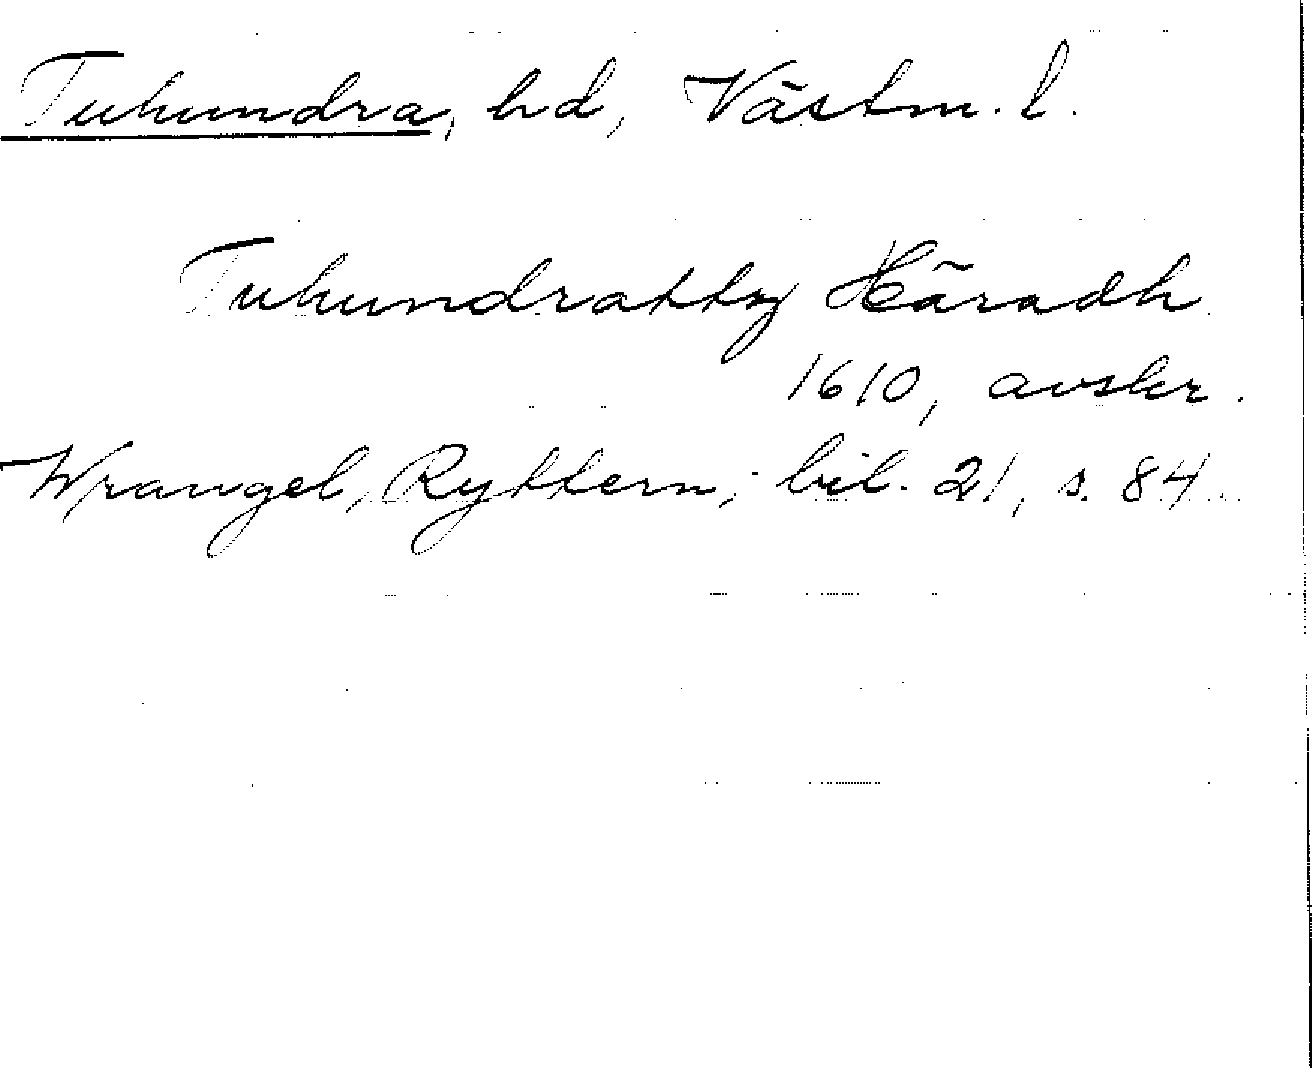 Tuhundra, hd, Västm. l.
Tuhundratty Häradh
1610, avskr.
Wrangel, Ryttern, bil. 21, s. 84